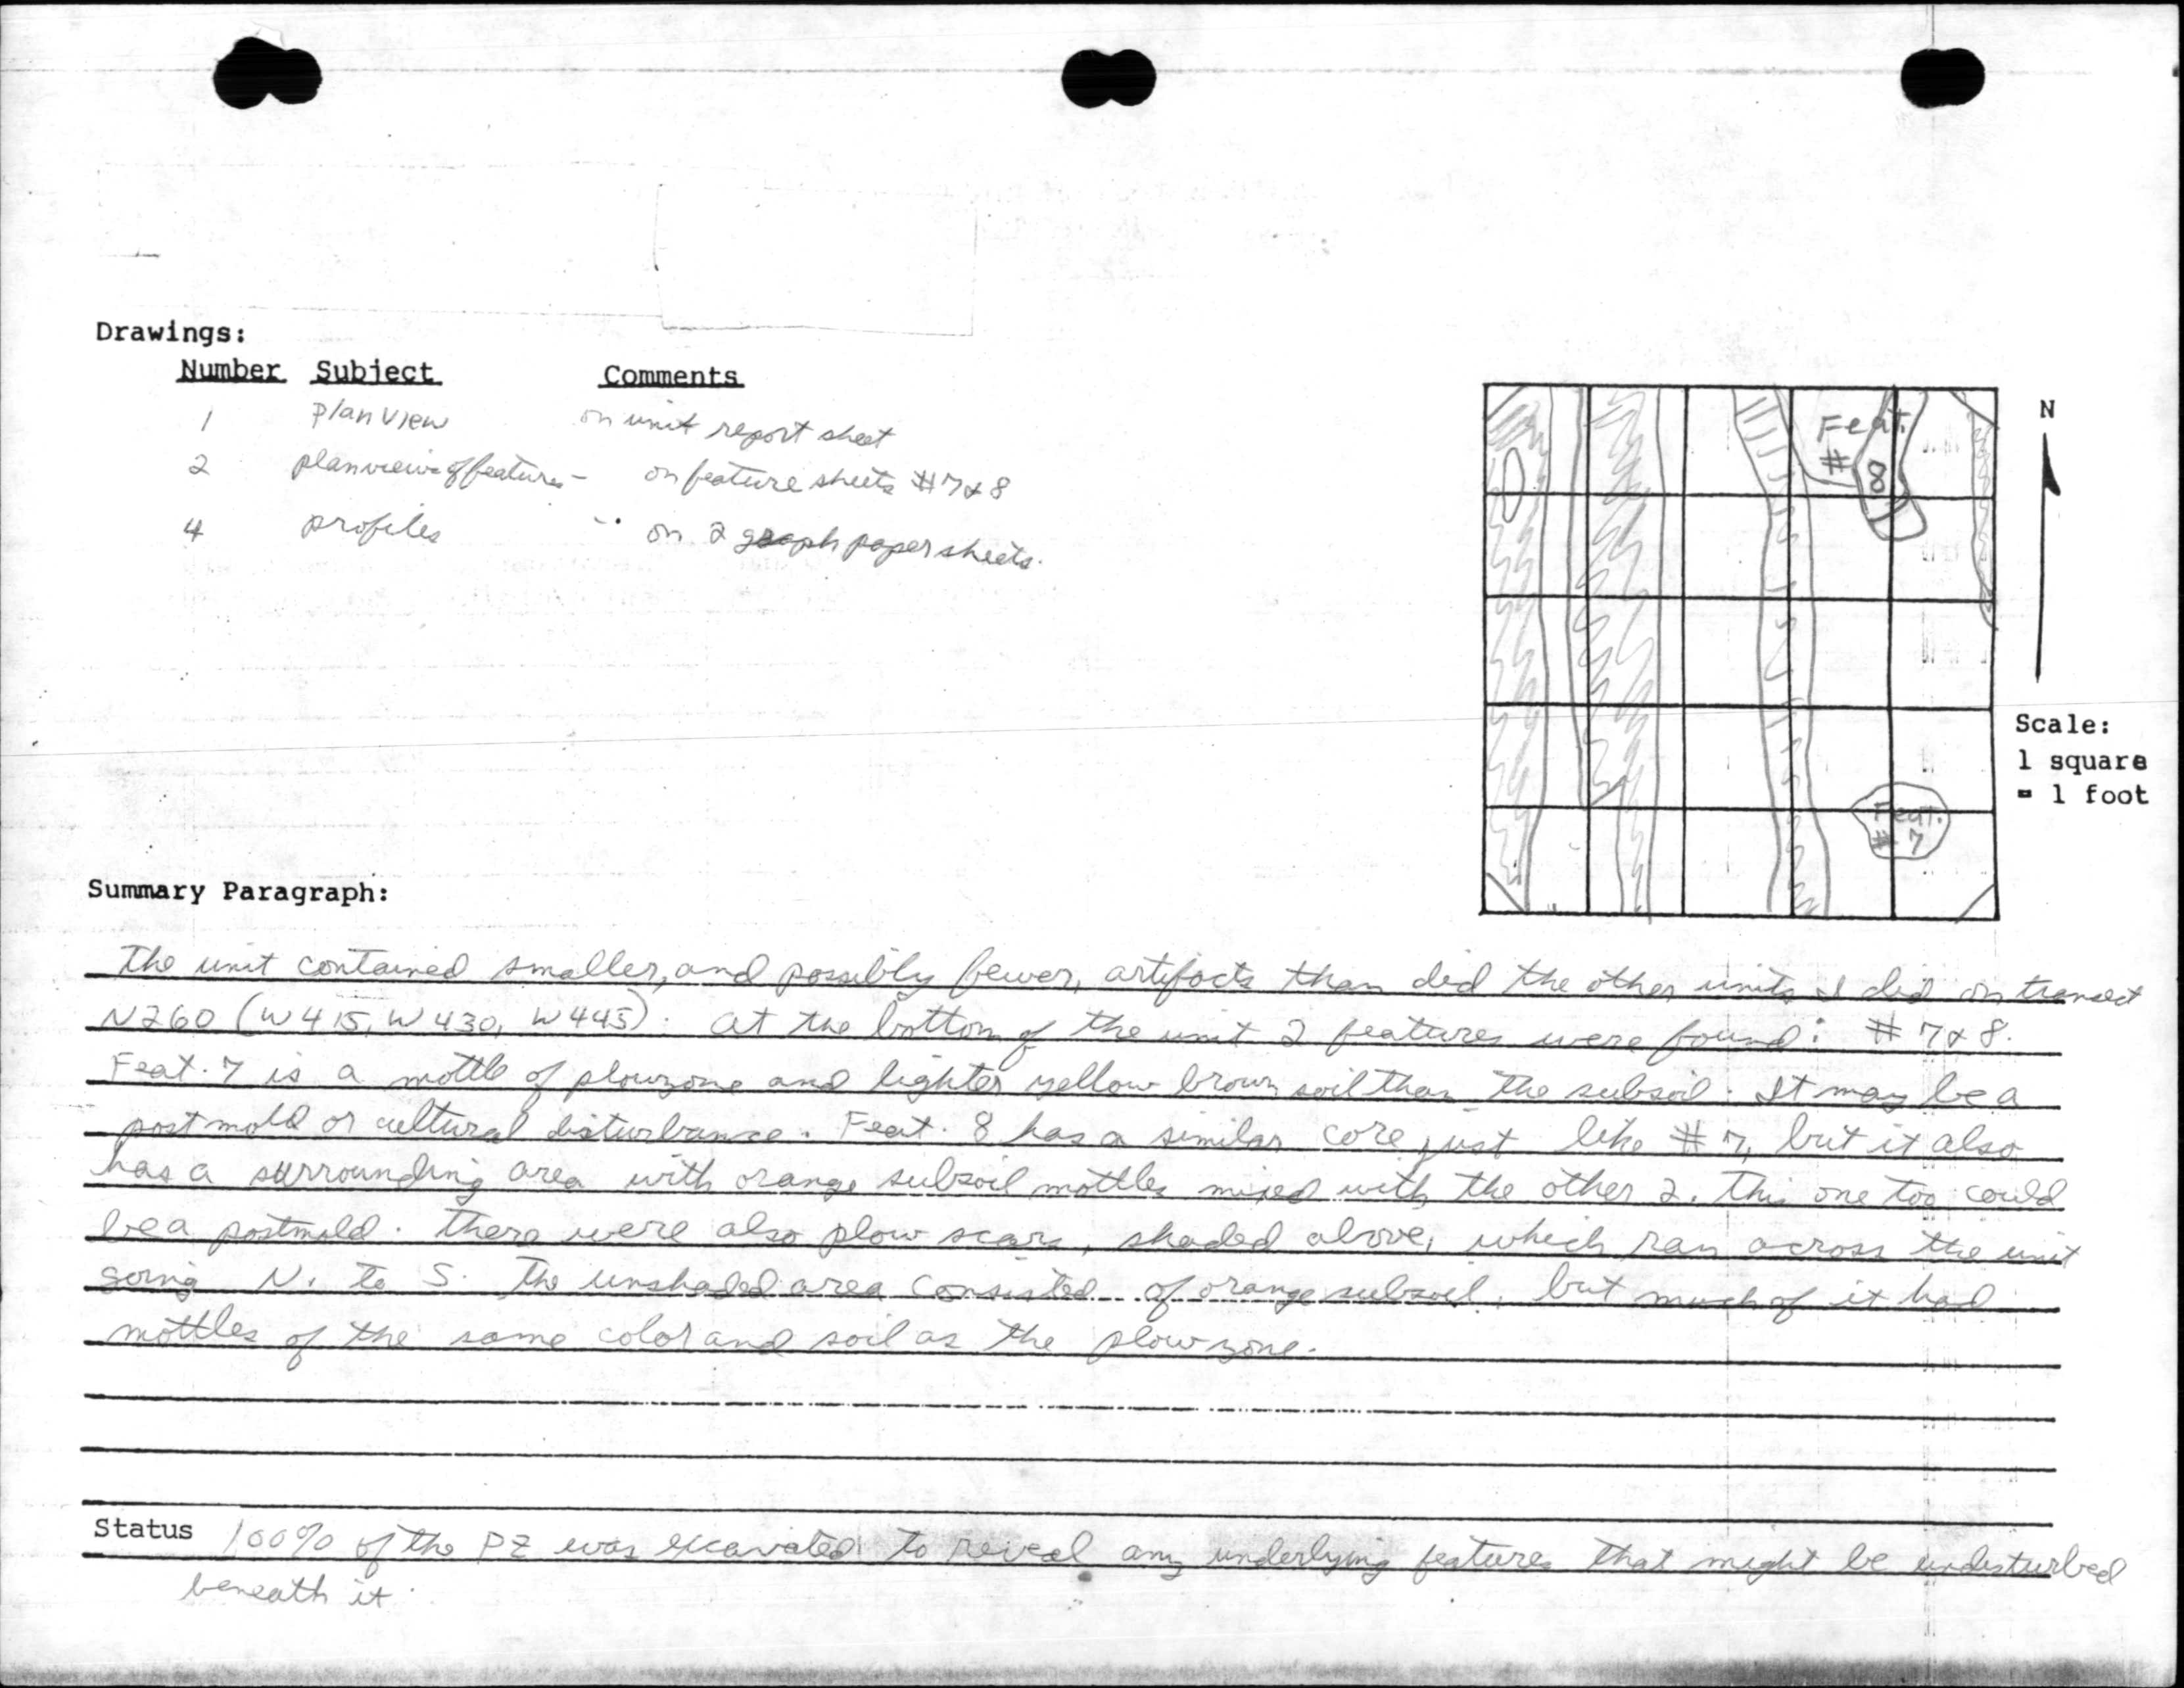 Drawings:
Number Subject Comments
1 Plan View on unit report sheet
2 planview of features - on feature sheets #7 & 8
4 profiles - on 2 graph paper sheets.
Feat. # 8
N
Scale:
1 square
= 1 foot
Feat. # 7
Summary Paragraph:
The unit contained smaller, and possibly fewer, artifacts than did the other units I did on transect
N260 (W415, W430, W445). At the bottom of the unit 2 features were found: # 7 & 8.
Feat. 7 is a mottle of plowzone and lighter yellow brown soil than the subsoil. It may be a
postmold or cultural disturbance. Feat. 8 has a similar core just like # 7, but it also
has a surrounding area with orange subsoil mottles mixed with the other 2. This one too could
be a postmold. There were also plow scars, shaded above, which ran across the unit
going N. to S. The unshaded area consisted of orange subsoil, but much of it had
mottles of the same color and soil as the plowzone.
Status 100% of the PZ was excavated to reveal any underlying features that might be undisturbed
beneath it.